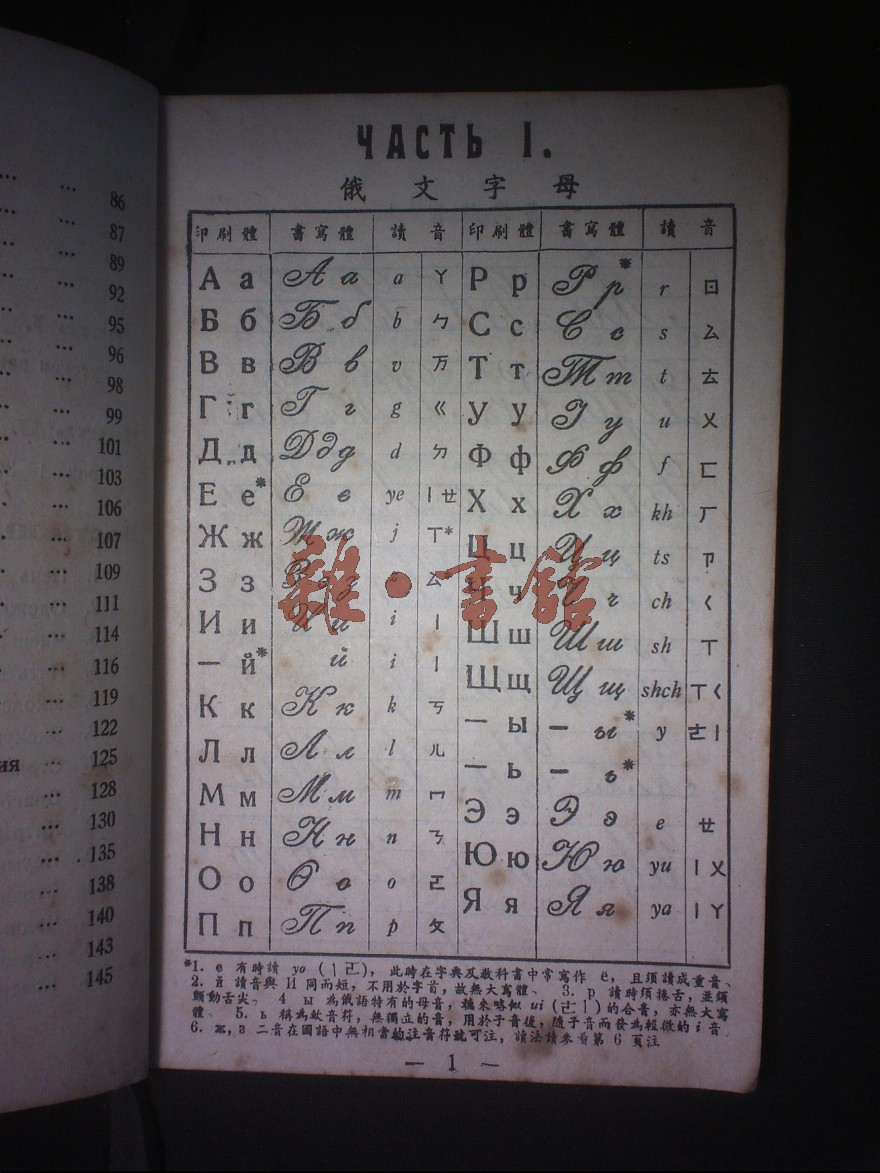 86
87
89
92
95
96
98
99
101
103
106
107
109
111
114
116
119
122
ия ... 125
128
130
135
138
140
143
145
ЧАСТЬ I.
俄文字母
印刷體 書寫體 讀音 印刷體 書寫體 讀音
А а А а a ㄚ Р р Р р* r ㄖ
Б б Б б b ㄅ С с С с s ㄙ
В в В в v 万 Т т Т т t ㄊ
Г г Г г g ㄍ У у У у u ㄨ
Д д Д д д d ㄉ Ф ф Ф ф f ㄈ
Е е* Е е ye ㄧㄝ Х х Х х kh ㄏ
Ж ж Ж ж j ㄒ* Ц ц Ц ц ts ㄗ
З з З з ㄙ Ч ч Ч ч ch ㄑ
И и И и i ㄧ Ш ш Ш ш sh ㄒ
— й* й i ㄧ Щ щ Щ щ shch ㄒㄑ
К к К к k ㄎ — ы — ы* y ㄜㄧ
Л л Л л l ㄦ — ь — ь*
М м М м m ㄇ Э э Э э e ㄝ
Н н Н н n ㄋ Ю ю Ю ю yu ㄧㄨ
О о О о o ㄛ Я я Я я ya ㄧㄚ
П п П п p ㄆ
雜·書館
*1. е 有時讀 yo (ㄧㄛ), 此時在字典及教科書中常寫作 ё, 且須讀成重音、
2. й 讀音與 И 同而短, 不用於字首, 故無大寫體、 3. р 讀時須捲舌, 並須
顫動舌尖、 4 ы 為俄語特有的母音, ui ( ㄧ) 的合音, 亦無大寫
體、 5. ь 稱為軟音符, 無獨立的音, 用於子音後, 隨子音而發為輕微的 i 音
6. ж, з 二音在國語中無相當的注音符號可注, 讀法請參看第 6 頁注
— 1 —